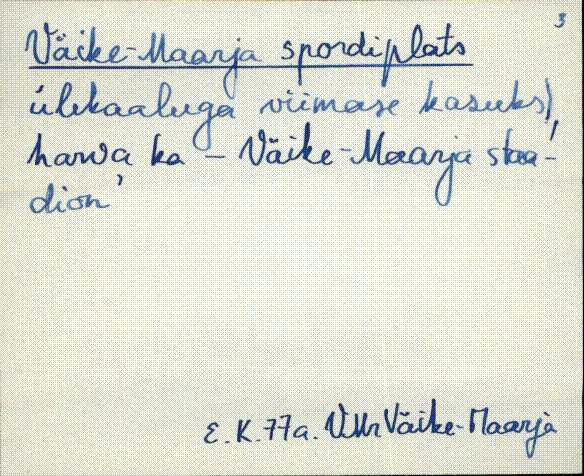 3
Väike-Maarja spordiplats
ülekaaluga viimase kasuks),
harva ka – Väike-Maarja staa-
dion'
E.K.77a. VMr Väike-Maarja